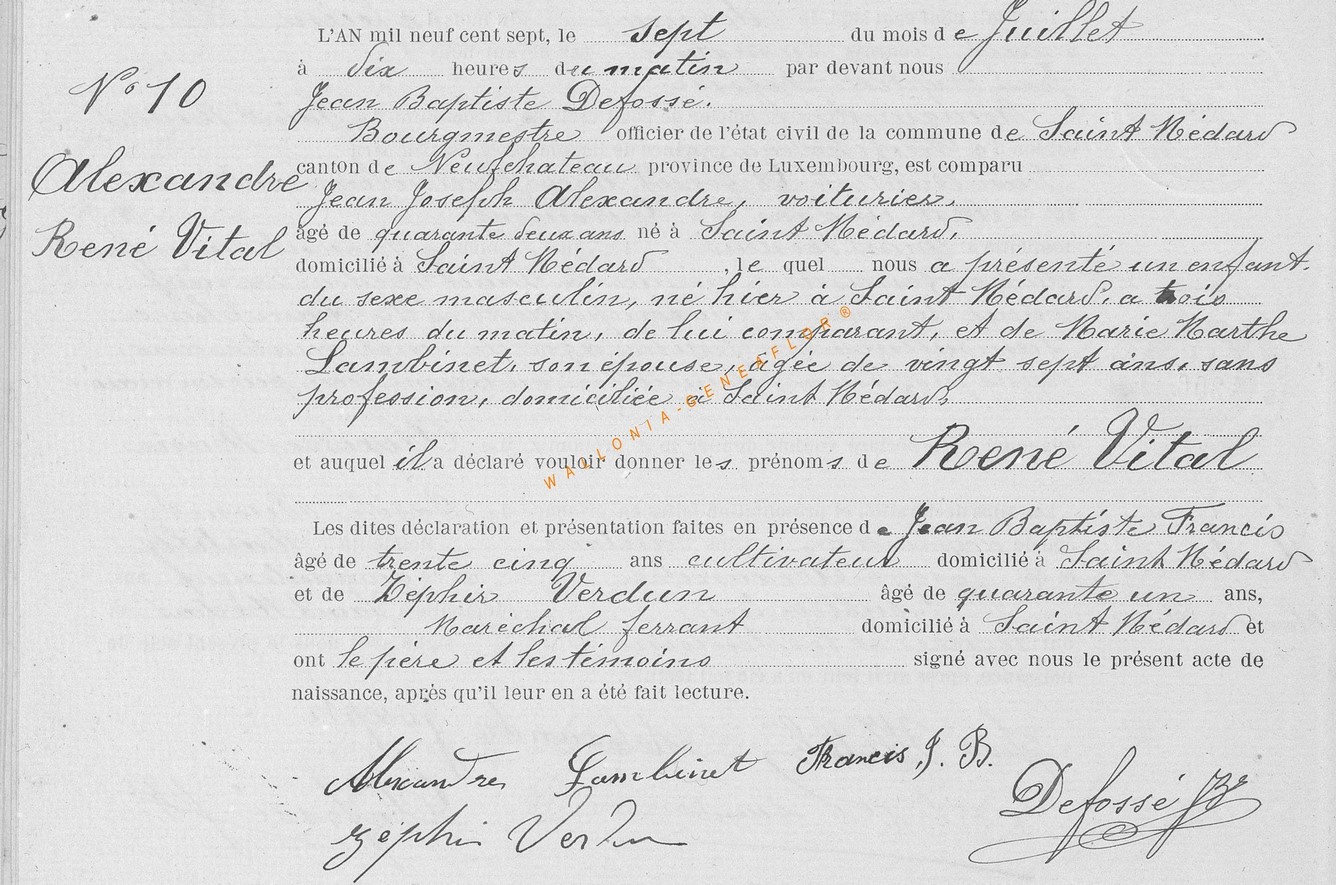 N° 10
Alexandre
René Vital
L'AN mil neuf cent sept, le sept du mois de Juillet
à dix heures du matin par devant nous
Jean Baptiste Defossé.
Bourgmestre officier de l'état civil de la commune de Saint Médard
canton de Neufchateau province de Luxembourg, est comparu
Jean Joseph Alexandre, voiturier,
âgé de quarante deux ans né à Saint Médard,
domicilié à Saint Médard, lequel nous a présenté un enfant.
du sexe masculin, né hier à Saint Médard, a trois
heures du matin, de lui comparant, et de Marie Marthe
Lambinet, son épouse, âgée de vingt sept ans, sans
profession, domiciliée à Saint Médard,
et auquel il a déclaré vouloir donner les prénoms de René Vital
Les dites déclaration et présentation faites en présence de Jean Baptiste Francis
âgé de trente cinq ans cultivateur domicilié à Saint Médard
et de Zéphir Verdun âgé de quarante un ans,
Maréchal ferrant domicilié à Saint Médard et
ont le père et les témoins signé avec nous le présent acte de
naissance, après qu'il leur en a été fait lecture.
Alexandre Lambinet Francis, J. B.
Defossé JB
Zephir Verdun
WALLONIA-GENEAFLOR®